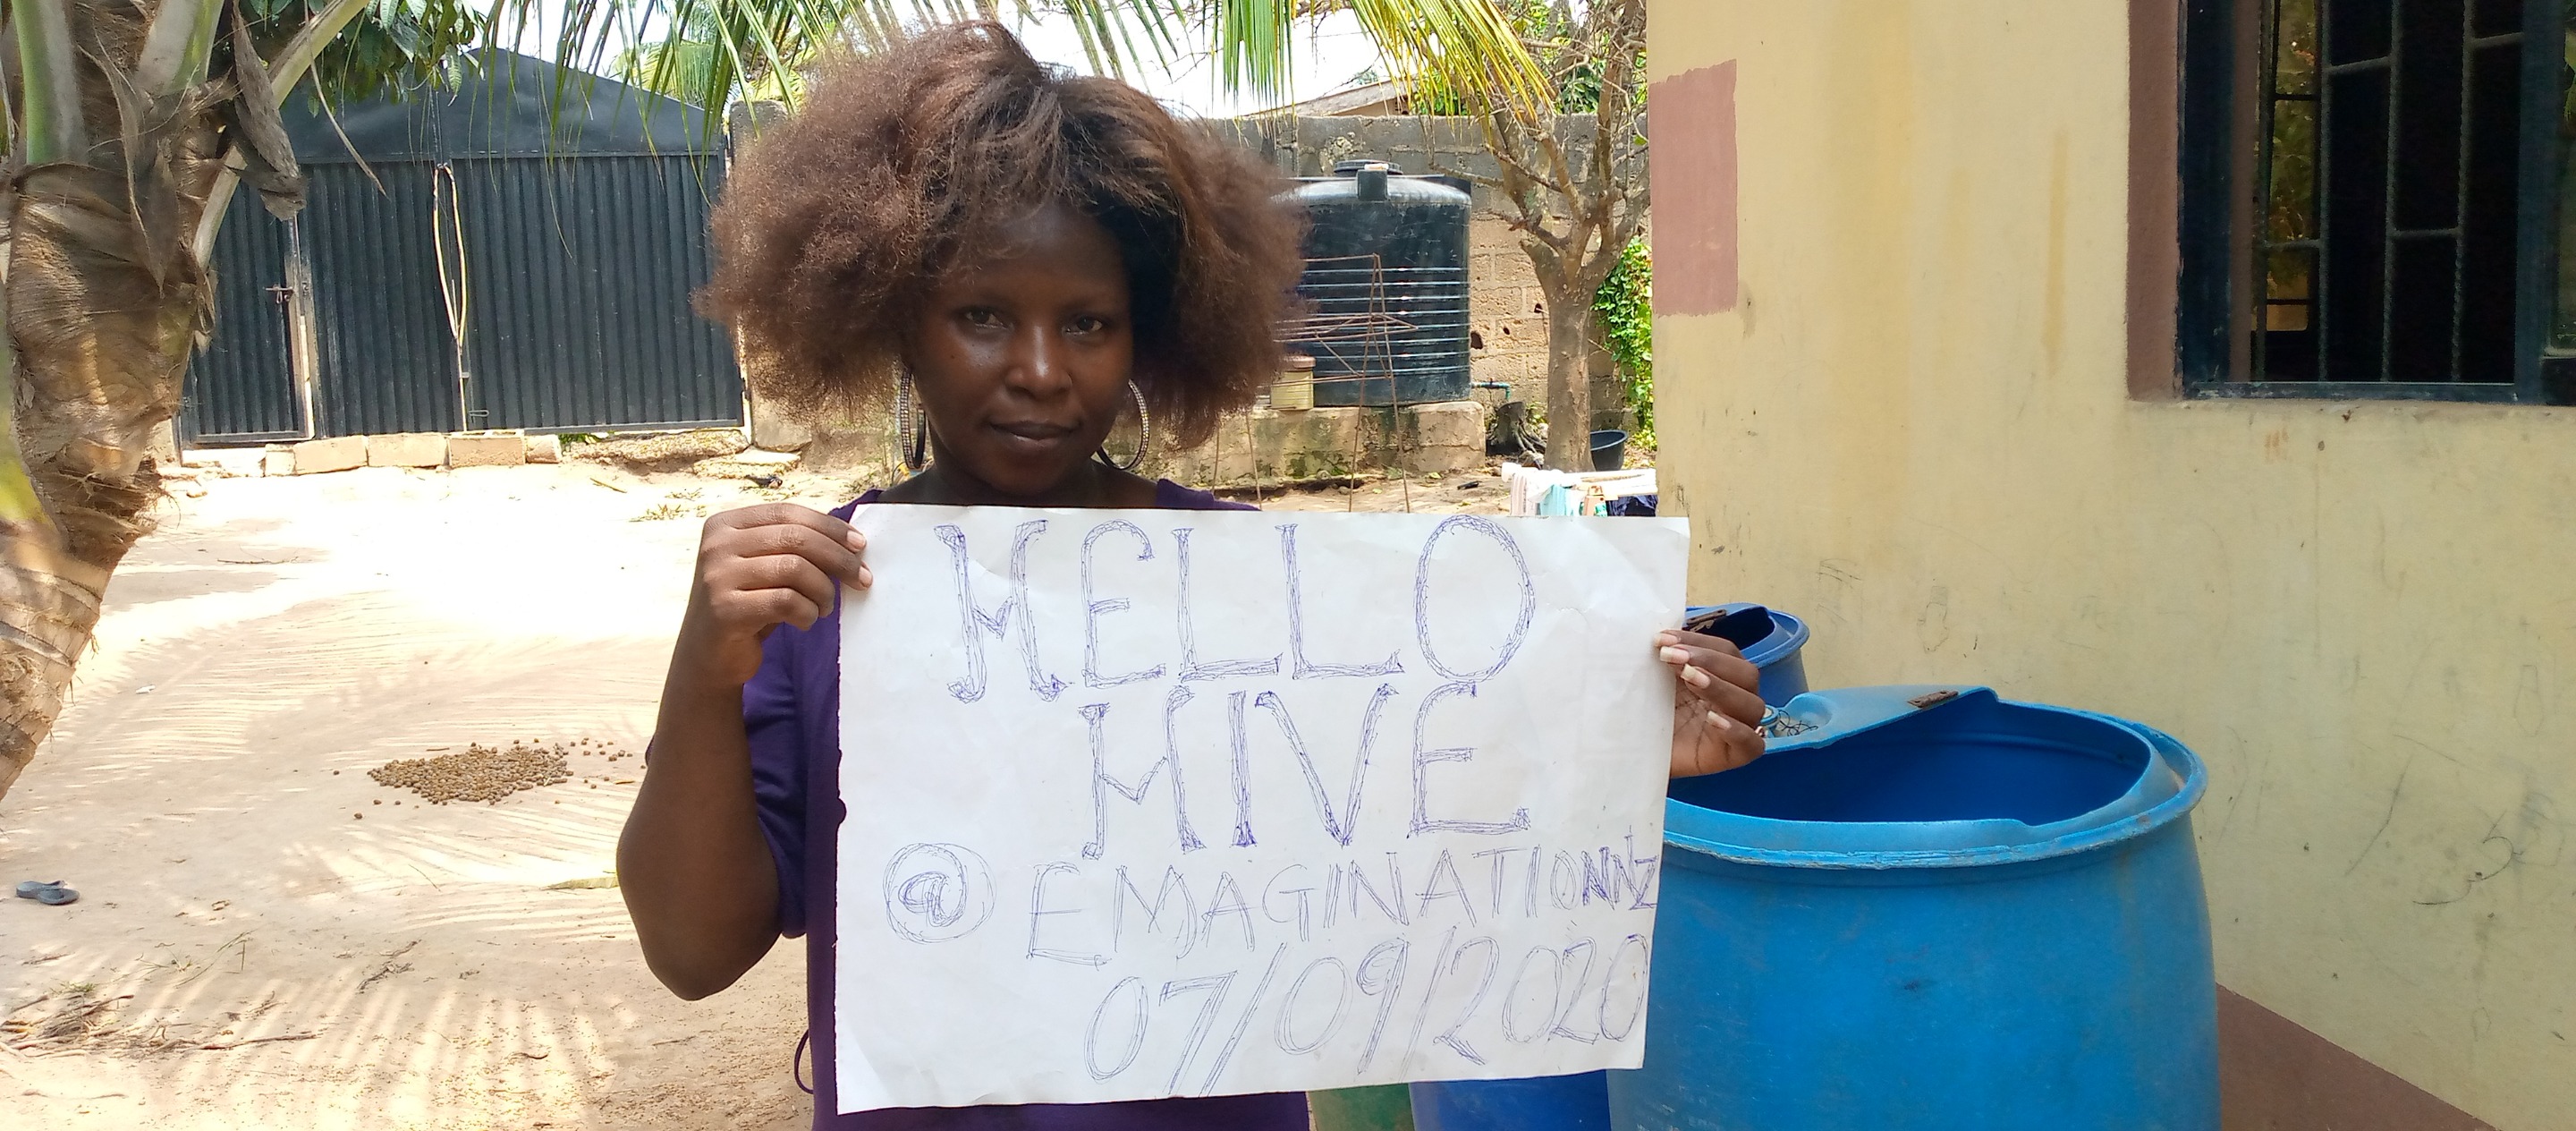 HELLO
HIVE
@EMAGINATIONNZ
07/09/2020